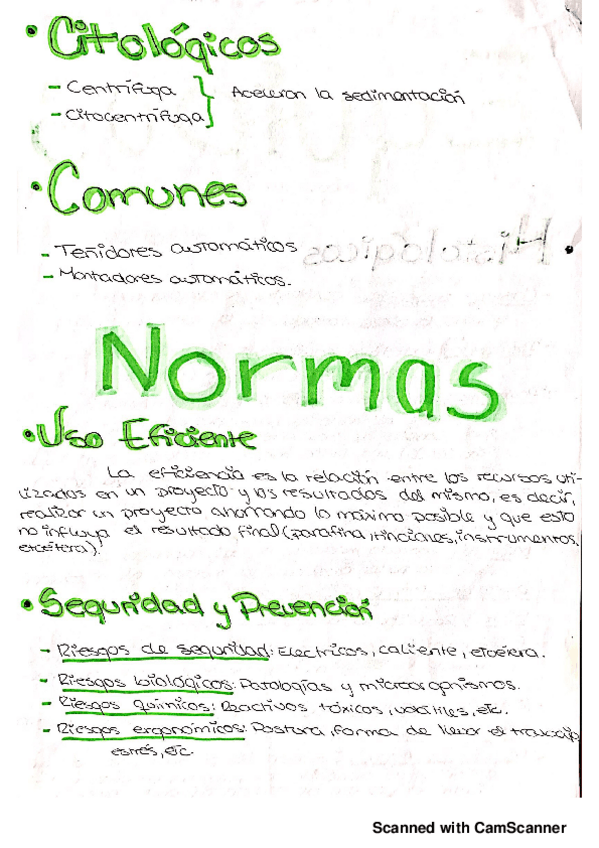 • Citológicos
- Centrífuga
- Citocentrífuga } Aceleran la sedimentación
• Comunes
- Teñidores automáticos
Histológicos •
- Montadores automáticos.
Normas
• Uso Eficiente
La eficiencia es la relación entre los recursos uti-
lizados en un proyecto y los resultados del mismo, es decir,
realizar un proyecto ahorrando lo máximo posible y que esto
no influya el resultado final (parafina, tinciones, instrumentos,
etcétera).
• Seguridad y Prevención
- Riesgos de seguridad: Eléctricos, caliente, etcétera.
- Riesgos biológicos: Patologías y microorganismos.
- Riesgos químicos: Reactivos tóxicos, volátiles, etc.
- Riesgos ergonómicos: Postura, forma de llevar el trabajo,
estrés, etc.
Scanned with CamScanner